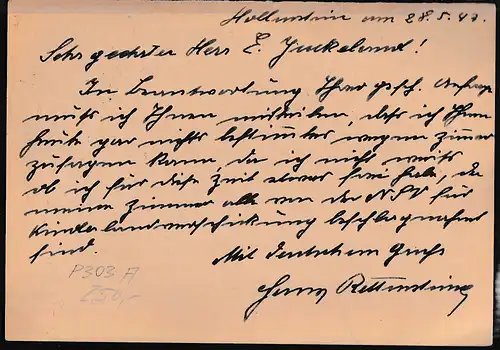 am 28.5.43.
Sehr geehrter Herr E. !
In Beantwortung Ihrer gesch. Anfrage
muß ich Ihnen mitteilen, daß ich Ihnen
heute gar nichts bestimmtes wegen Zimmer
zusagen kann, da ich nicht weiß
ob ich für diese Zeit etwas frei habe, da
meine Zimmer alle von der NSV für
Kinderlandverschickung beschlagnahmt
sind.
Mit deutschem Gruß
P303 A
250,-